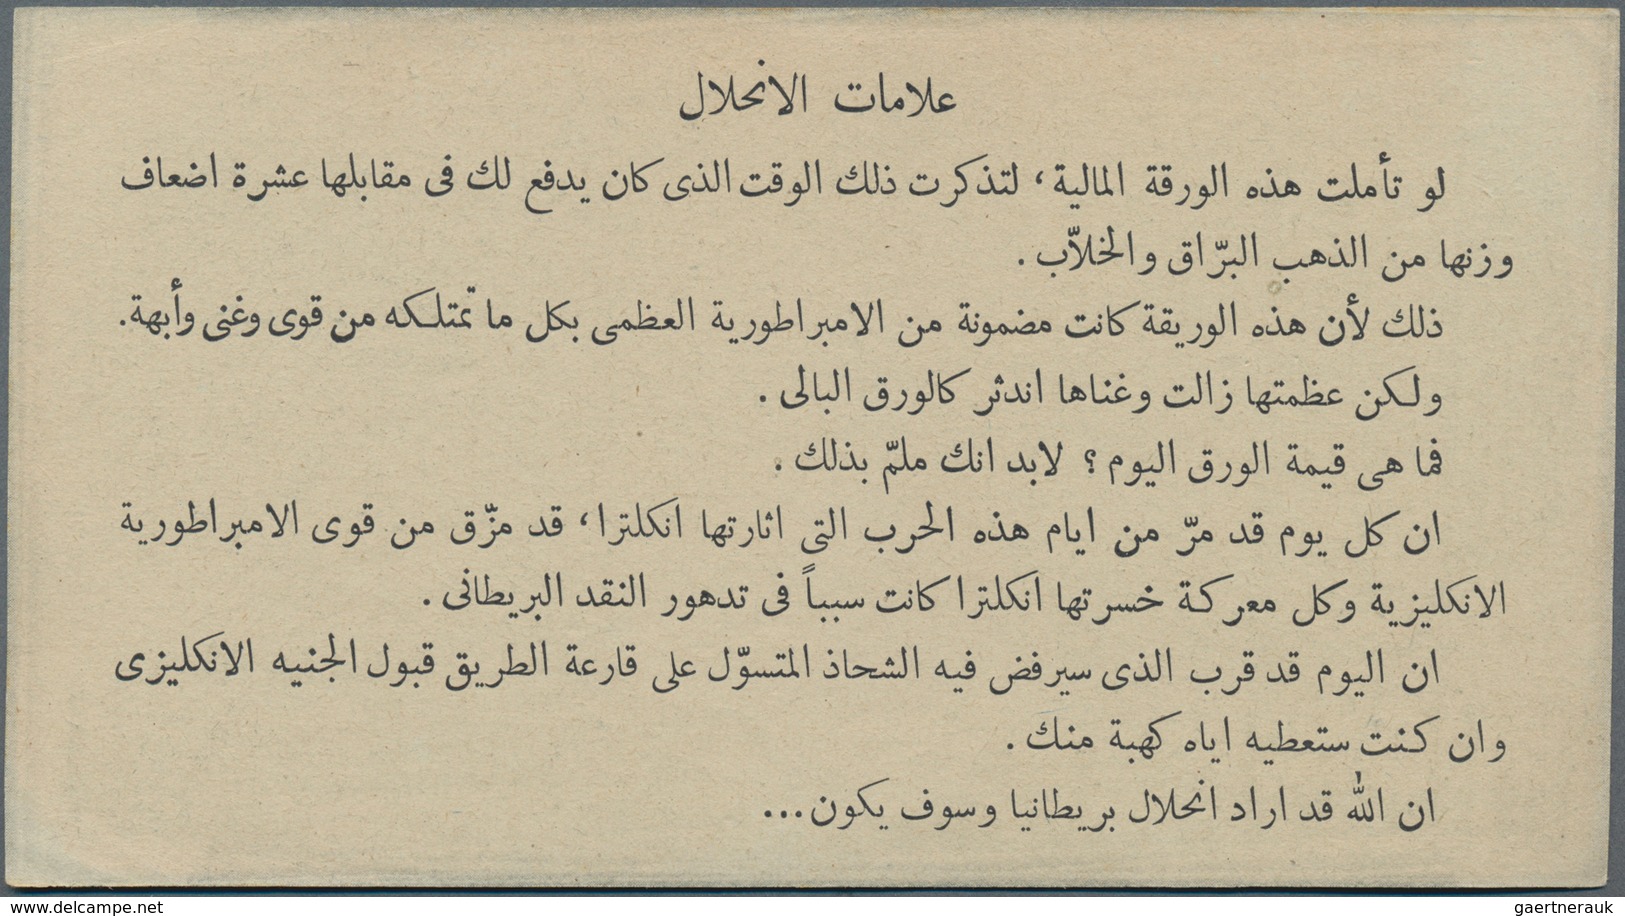 علامات الانحلال
لو تأملت هذه الورقة المالية، لتذكرت ذلك الوقت الذى كان يدفع لك فى مقابلها عشرة اضعاف
وزنها من الذهب البرّاق والخلاّب.
ذلك لأن هذه الوريقة كانت مضمونة من الامبراطورية العظمى بكل ما تمتلكه من قوى وغنى وأبهة.
ولكن عظمتها زالت وغناها اندثر كالورق البالى.
فما هى قيمة الورق اليوم؟ لابد انك ملمّ بذلك.
ان كل يوم قد مرّ من ايام هذه الحرب التى اثارتها انكلترا، قد مزّق من قوى الامبراطورية
الانكليزية وكل معركة خسرتها انكلترا كانت سبباً فى تدهور النقد البريطانى.
ان اليوم قد قرب الذى سيرفض فيه الشحاذ المتسوّل على قارعة الطريق قبول الجنيه الانكليزى
وان كنت ستعطيه اياه كهبة منك.
ان الله قد اراد انحلال بريطانيا وسوف يكون...
www.delcampe.net
gaertnerauk